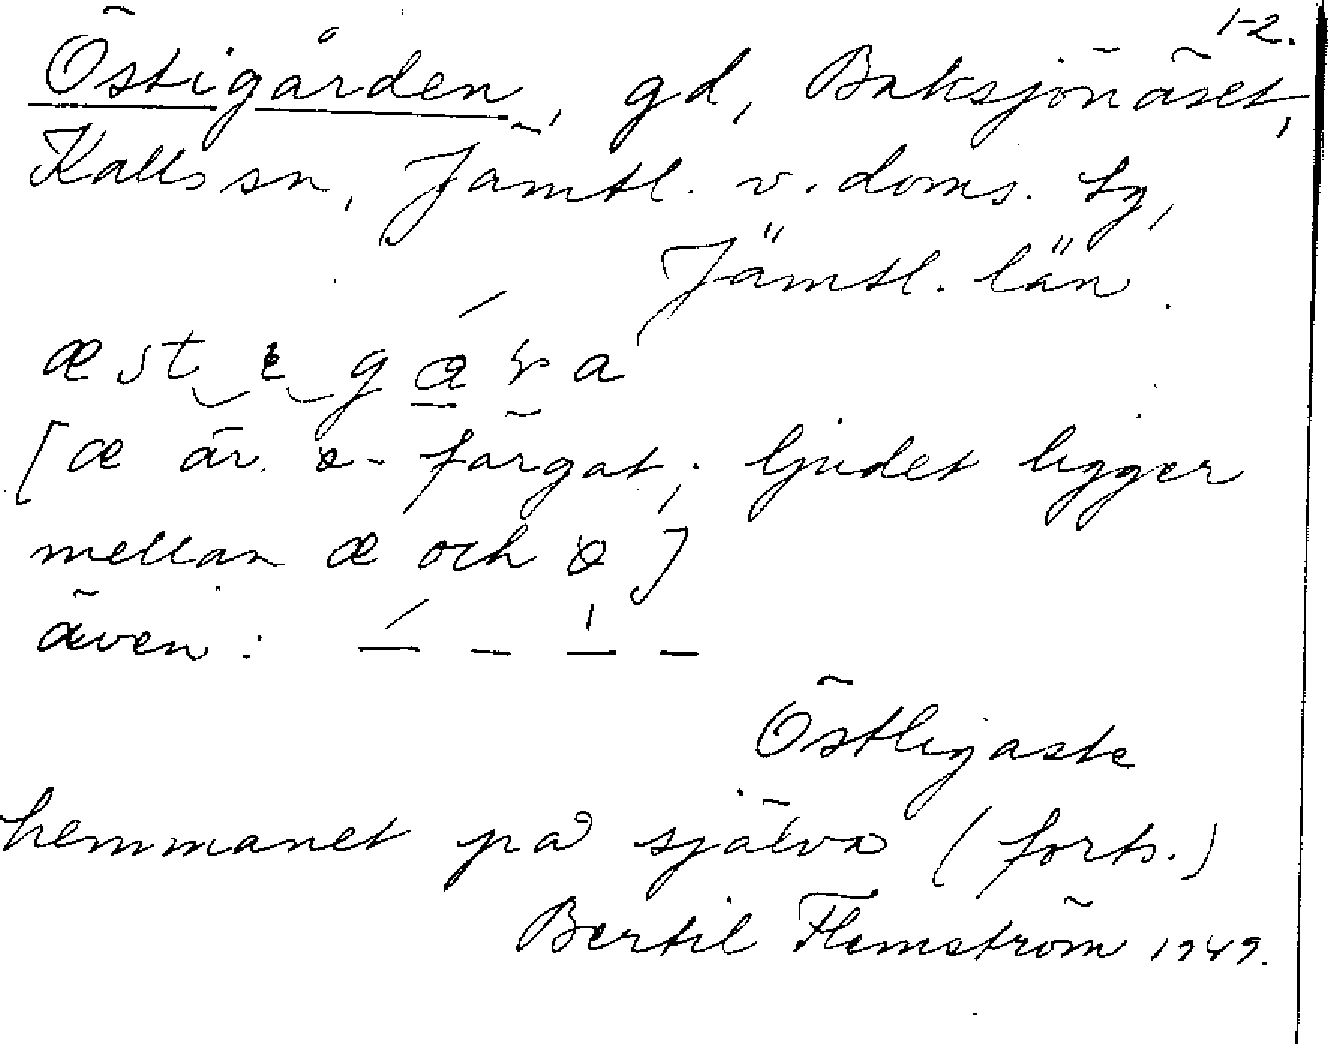 1-2.
Östigården, gd, Baksjönäset,
Kalls sn, Jämtl. v. doms. tg,
Jämtl. län.
[æ är ɵ-färgat; ljudet ligger
mellan æ och ɵ]
även:
Östligaste
hemmanet på själva (forts.)
Bertil Flemström 1949.